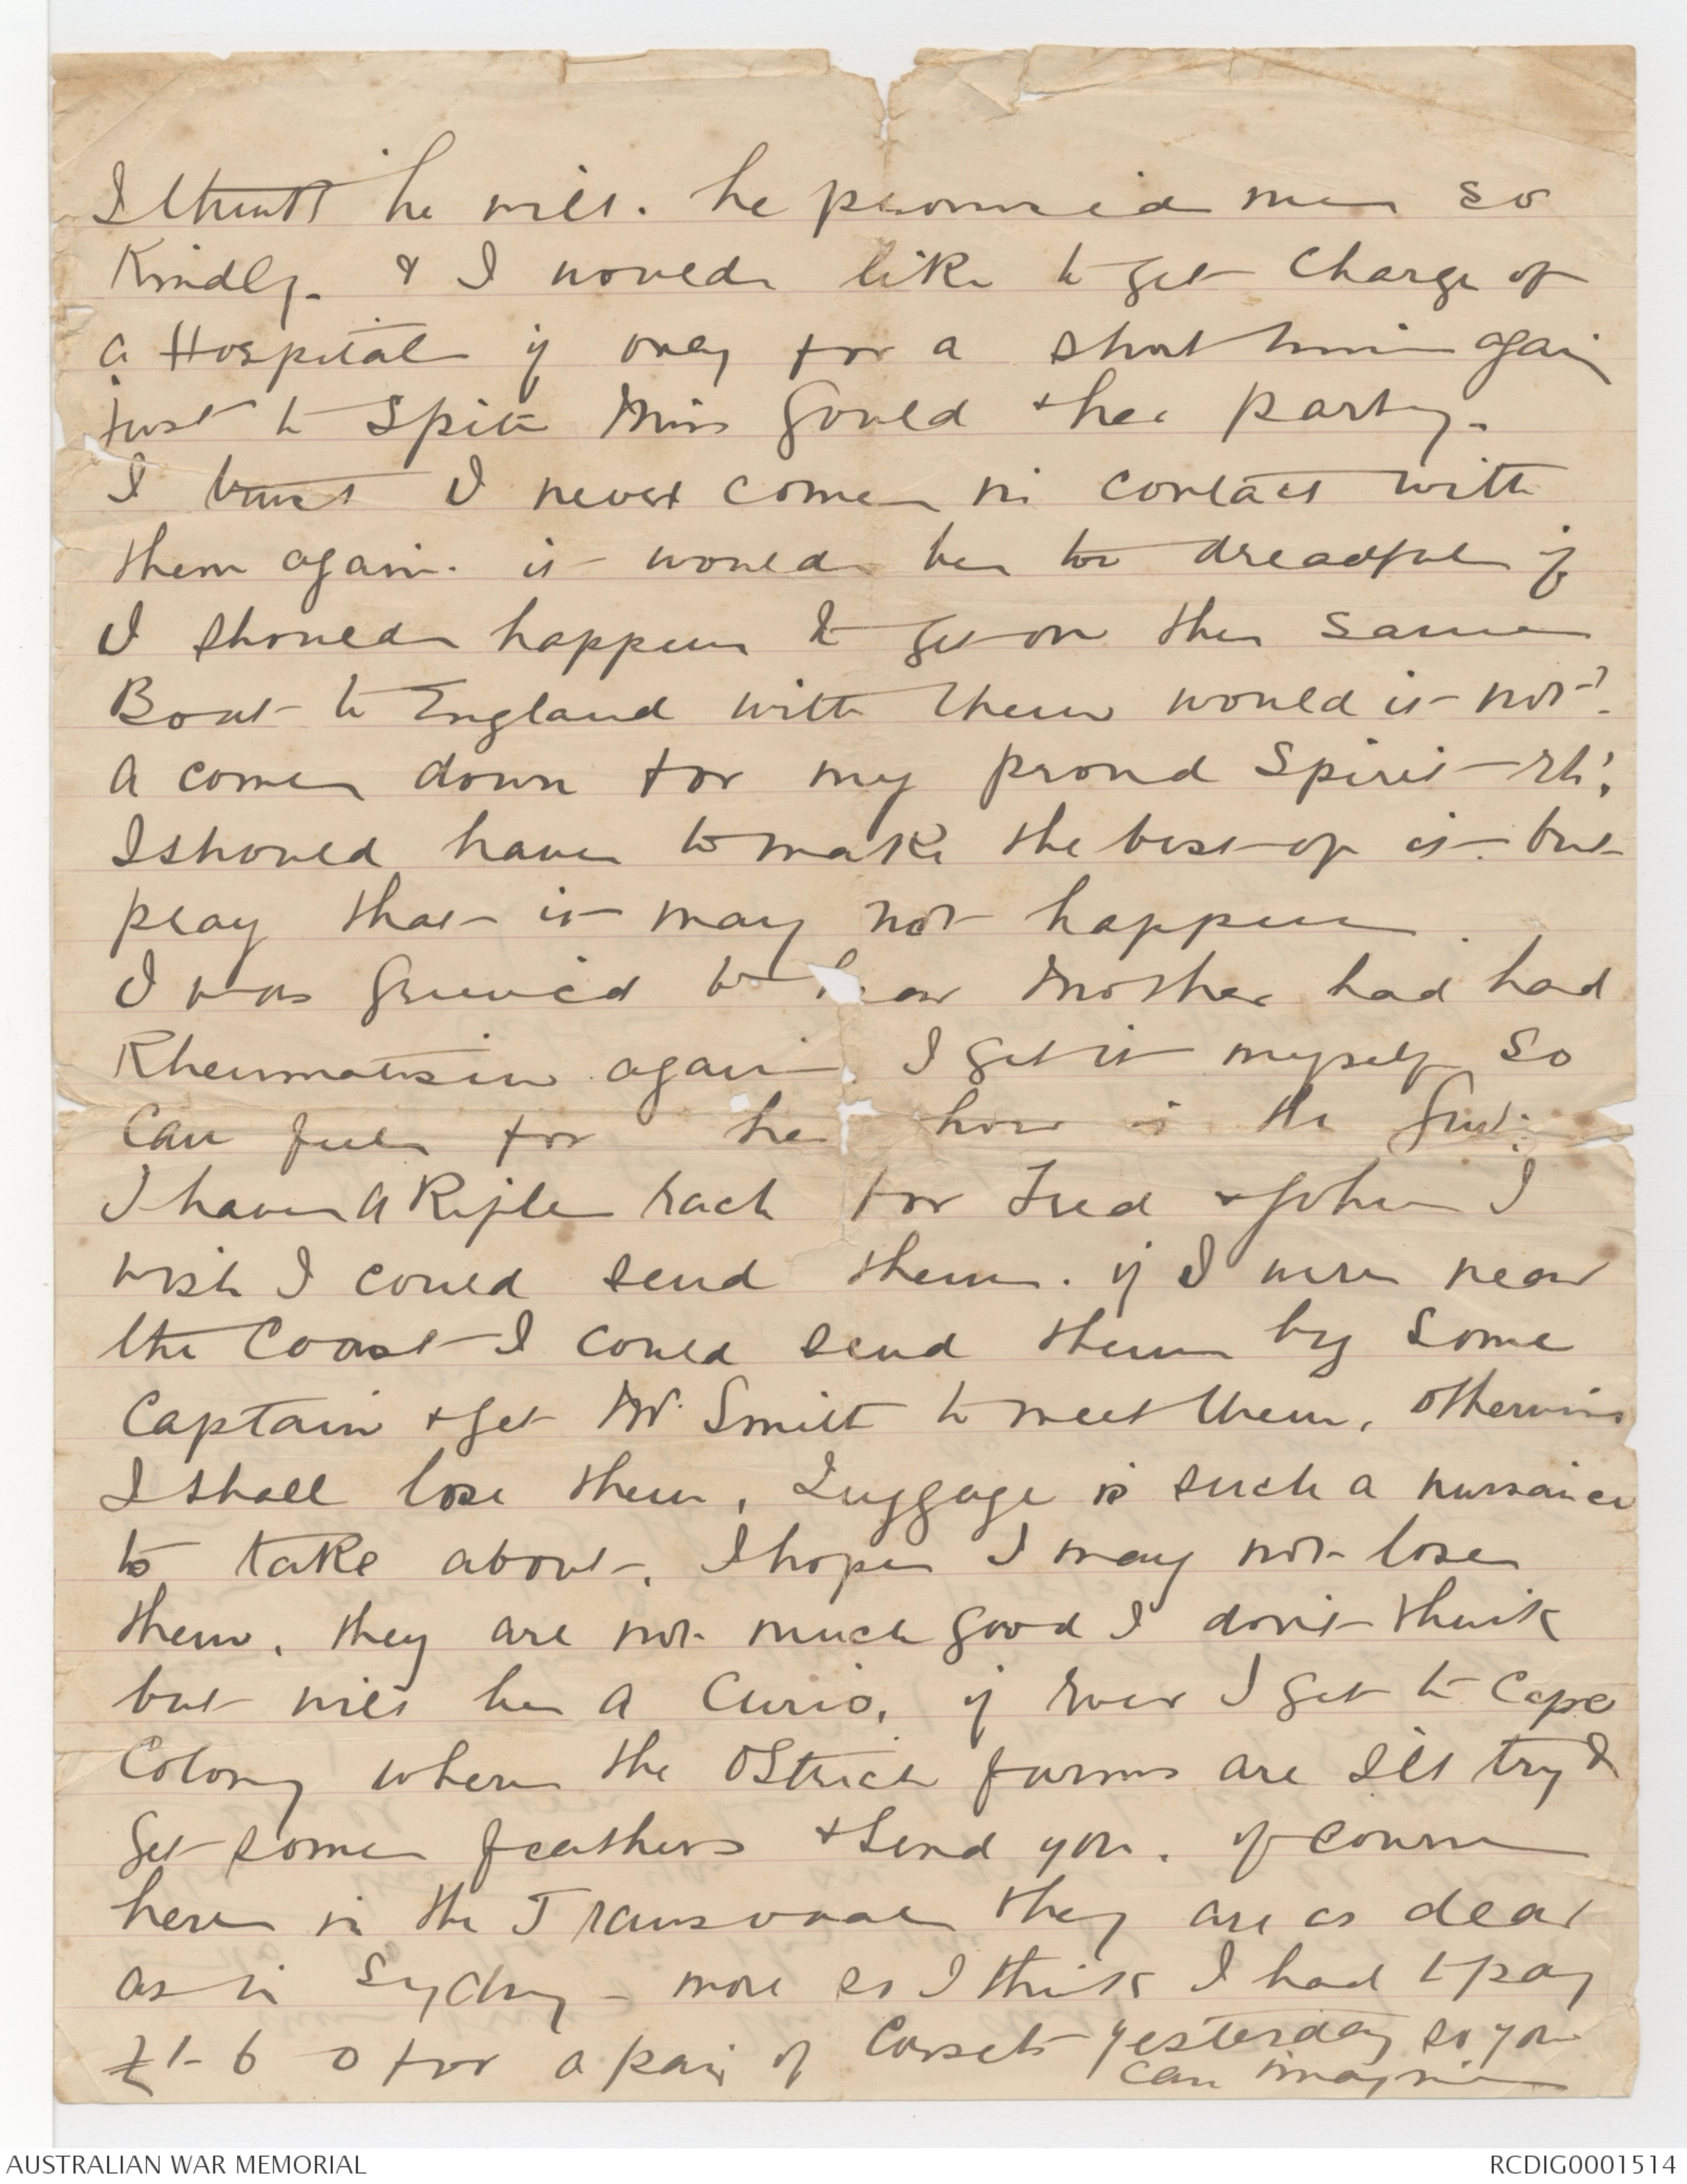 I think he will. he promised me so
Kindly. & I would like to get Charge of
a Hospital if only for a short time again
just to Spite Miss Gould & her party.
I trust I never come in contact with
them again. it would be too dreadful if
I should happen to get on the same
Boat to England with them would it not?
A come down for my proud Spirit - eh?
I should have to make the best of it. but
pray that it may not happen.
I was grieved to hear Mother had had
Rheumatism again. I get it myself so
Can feel for her how is the
I have A Rifle each for Fred & John I
wish I could send them. if I were near
the Coast I could send them by Some
Captain & get Mr. Smith to meet them, otherwise
I shall lose them, Luggage is such a nuisance
to take about. I hope I may not lose
them, they are not much good I don't think
but will be A Curio, if ever I get to Cape
Colony where the Ostrich farms are Ill try &
Get some feathers & send you. of course
here in the Transvaal they are as dear
as in Sydney - more so I think I had to pay
£1- 6 0 for a pair of Corsets yesterday so you
can imagine
AUSTRALIAN WAR MEMORIAL
RCDIG0001514